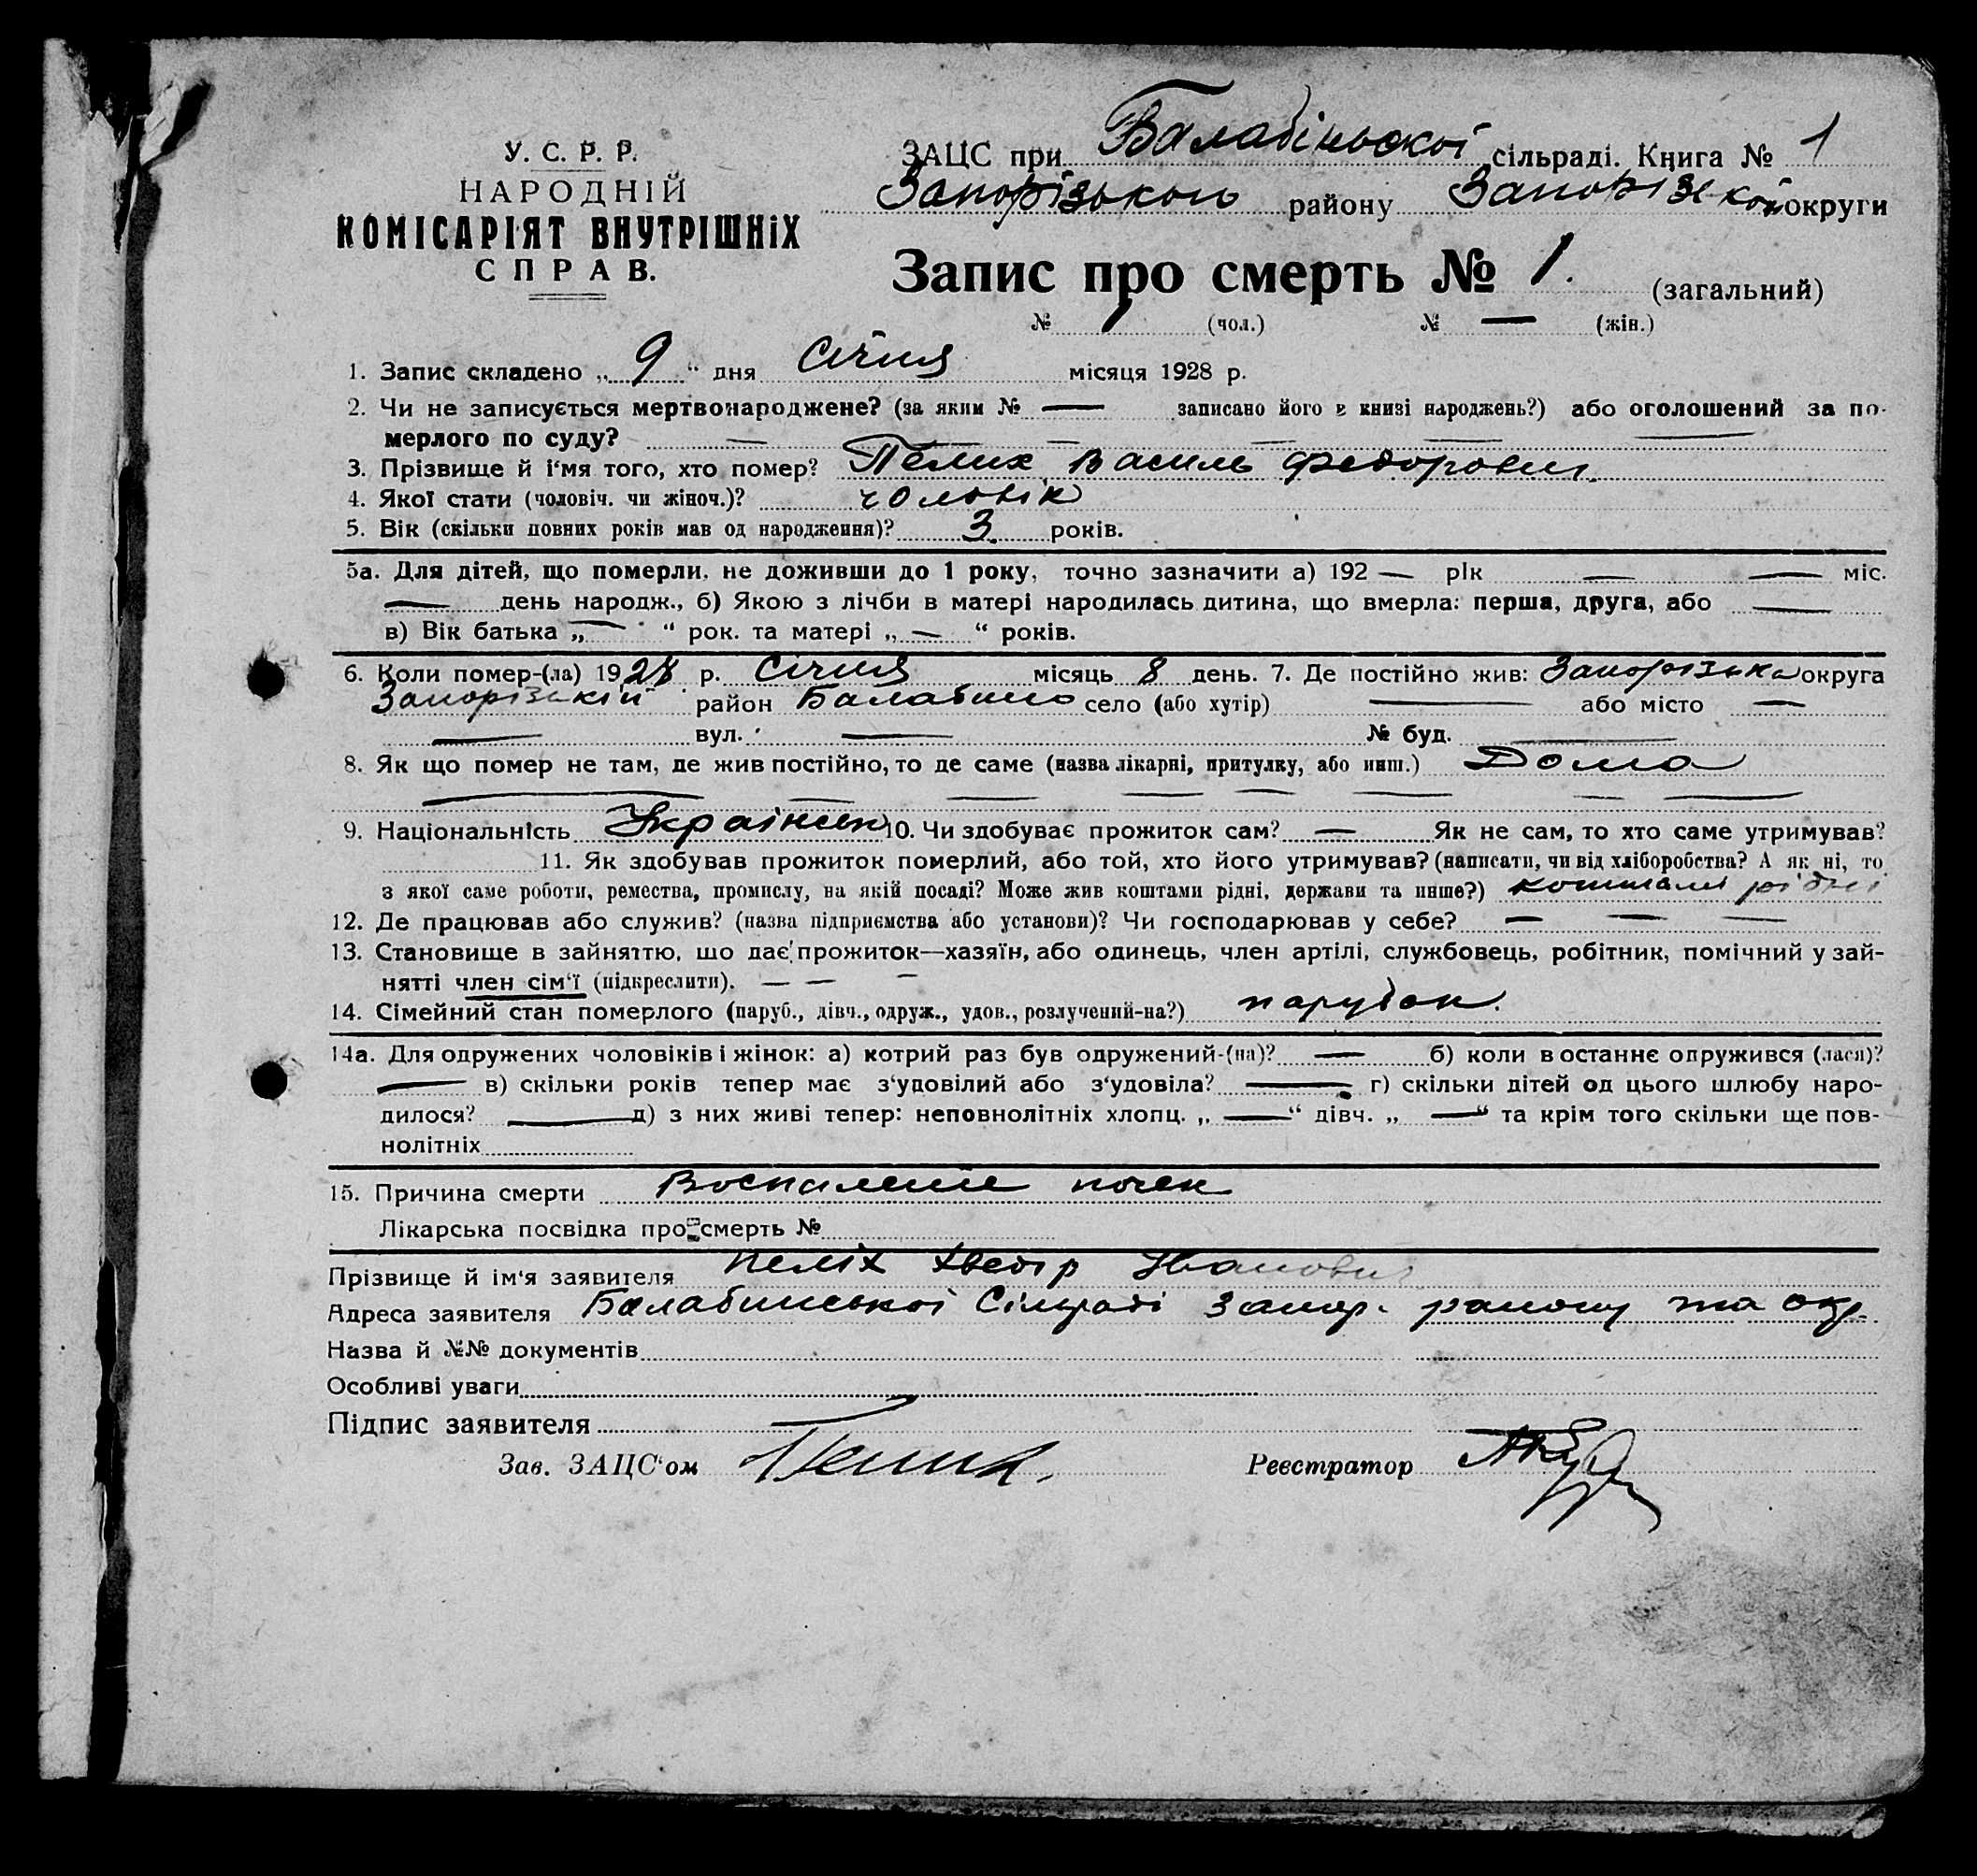 У. С. Р. Р.
НАРОДНІЙ
КОМІСАРІЯТ ВНУТРІШНІХ
СПРАВ.
ЗАЦС при Балабіньскої сільраді. Книга № 1
Запорізького району Запорізької округи
Запис про смерть № 1. (загальний)
№ 1 (чол.) № — (жін.)
1. Запис складено „ 9 “ дня Січня місяця 1928 р.
2. Чи не записується мертвонароджене? (за яким № — записано його в книзі народжень?) або оголошений за по-
мерлого по суду? — — — — —
3. Прізвище й і‘мя того, хто помер? Пелих Василь Федорович.
4. Якої стати (чоловіч. чи жіноч.)? чоловік
5. Вік (скільки повних років мав од народження)? 3 років.
5а. Для дітей, що померли, не доживши до 1 року, точно зазначити а) 192 — рік — — міс.
— день народж., б) Якою з лічби в матері народилась дитина, що вмерла: перша, друга, або —
в) Вік батька „ — “ рок. та матері „ — “ років.
6. Коли помер-(ла) 1928 р. Січня місяць 8 день. 7. Де постійно жив: Запорізька округа
Запорізький район Балабино село (або хутір) — або місто —
— вул. — № буд. —
8. Як що помер не там, де жив постійно, то де саме (назва лікарні, притулку, або инш.) Дома
— — — — — — — —
9. Національність Українец 10. Чи здобуває прожиток сам? — Як не сам, то хто саме утримував?
11. Як здобував прожиток померлий, або той, хто його утримував? (написати, чи від хліборобства? А як ні, то
з якої саме роботи, ремества, промислу, на якій посаді? Може жив коштами рідні, держави та инше?) коштами рідні
12. Де працював або служив? (назва підприємства або установи)? Чи господарював у себе? — — —
13. Становище в зайняттю, що дає прожиток—хазяїн, або одинець, член артілі, службовець, робітник, помічний у зай-
нятті член сім‘ї (підкреслити). — — —
14. Сімейний стан померлого (паруб., дівч., одруж., удов., розлучений-на?) парубок.
14а. Для одружених чоловіків і жінок: а) котрий раз був одружений-(на)? — б) коли в останнє одружився (лася)?
— в) скільки років тепер має з‘удовілий або з‘удовіла? — г) скільки дітей од цього шлюбу наро-
дилося? — д) з них живі тепер: неповнолітніх хлопц. „ — “ дівч. „ — “ та крім того скільки ще пов-
нолітніх
15. Причина смерти Воспаление почек
Лікарська посвідка про смерть №
Прізвище й ім‘я заявителя Пеліх Хведір Іванович
Адреса заявителя Балабинської Сільраді Запор. району та окр.
Назва й №№ документів
Особливі уваги
Підпис заявителя
Зав. ЗАЦС‘ом Пелих. Реєстратор